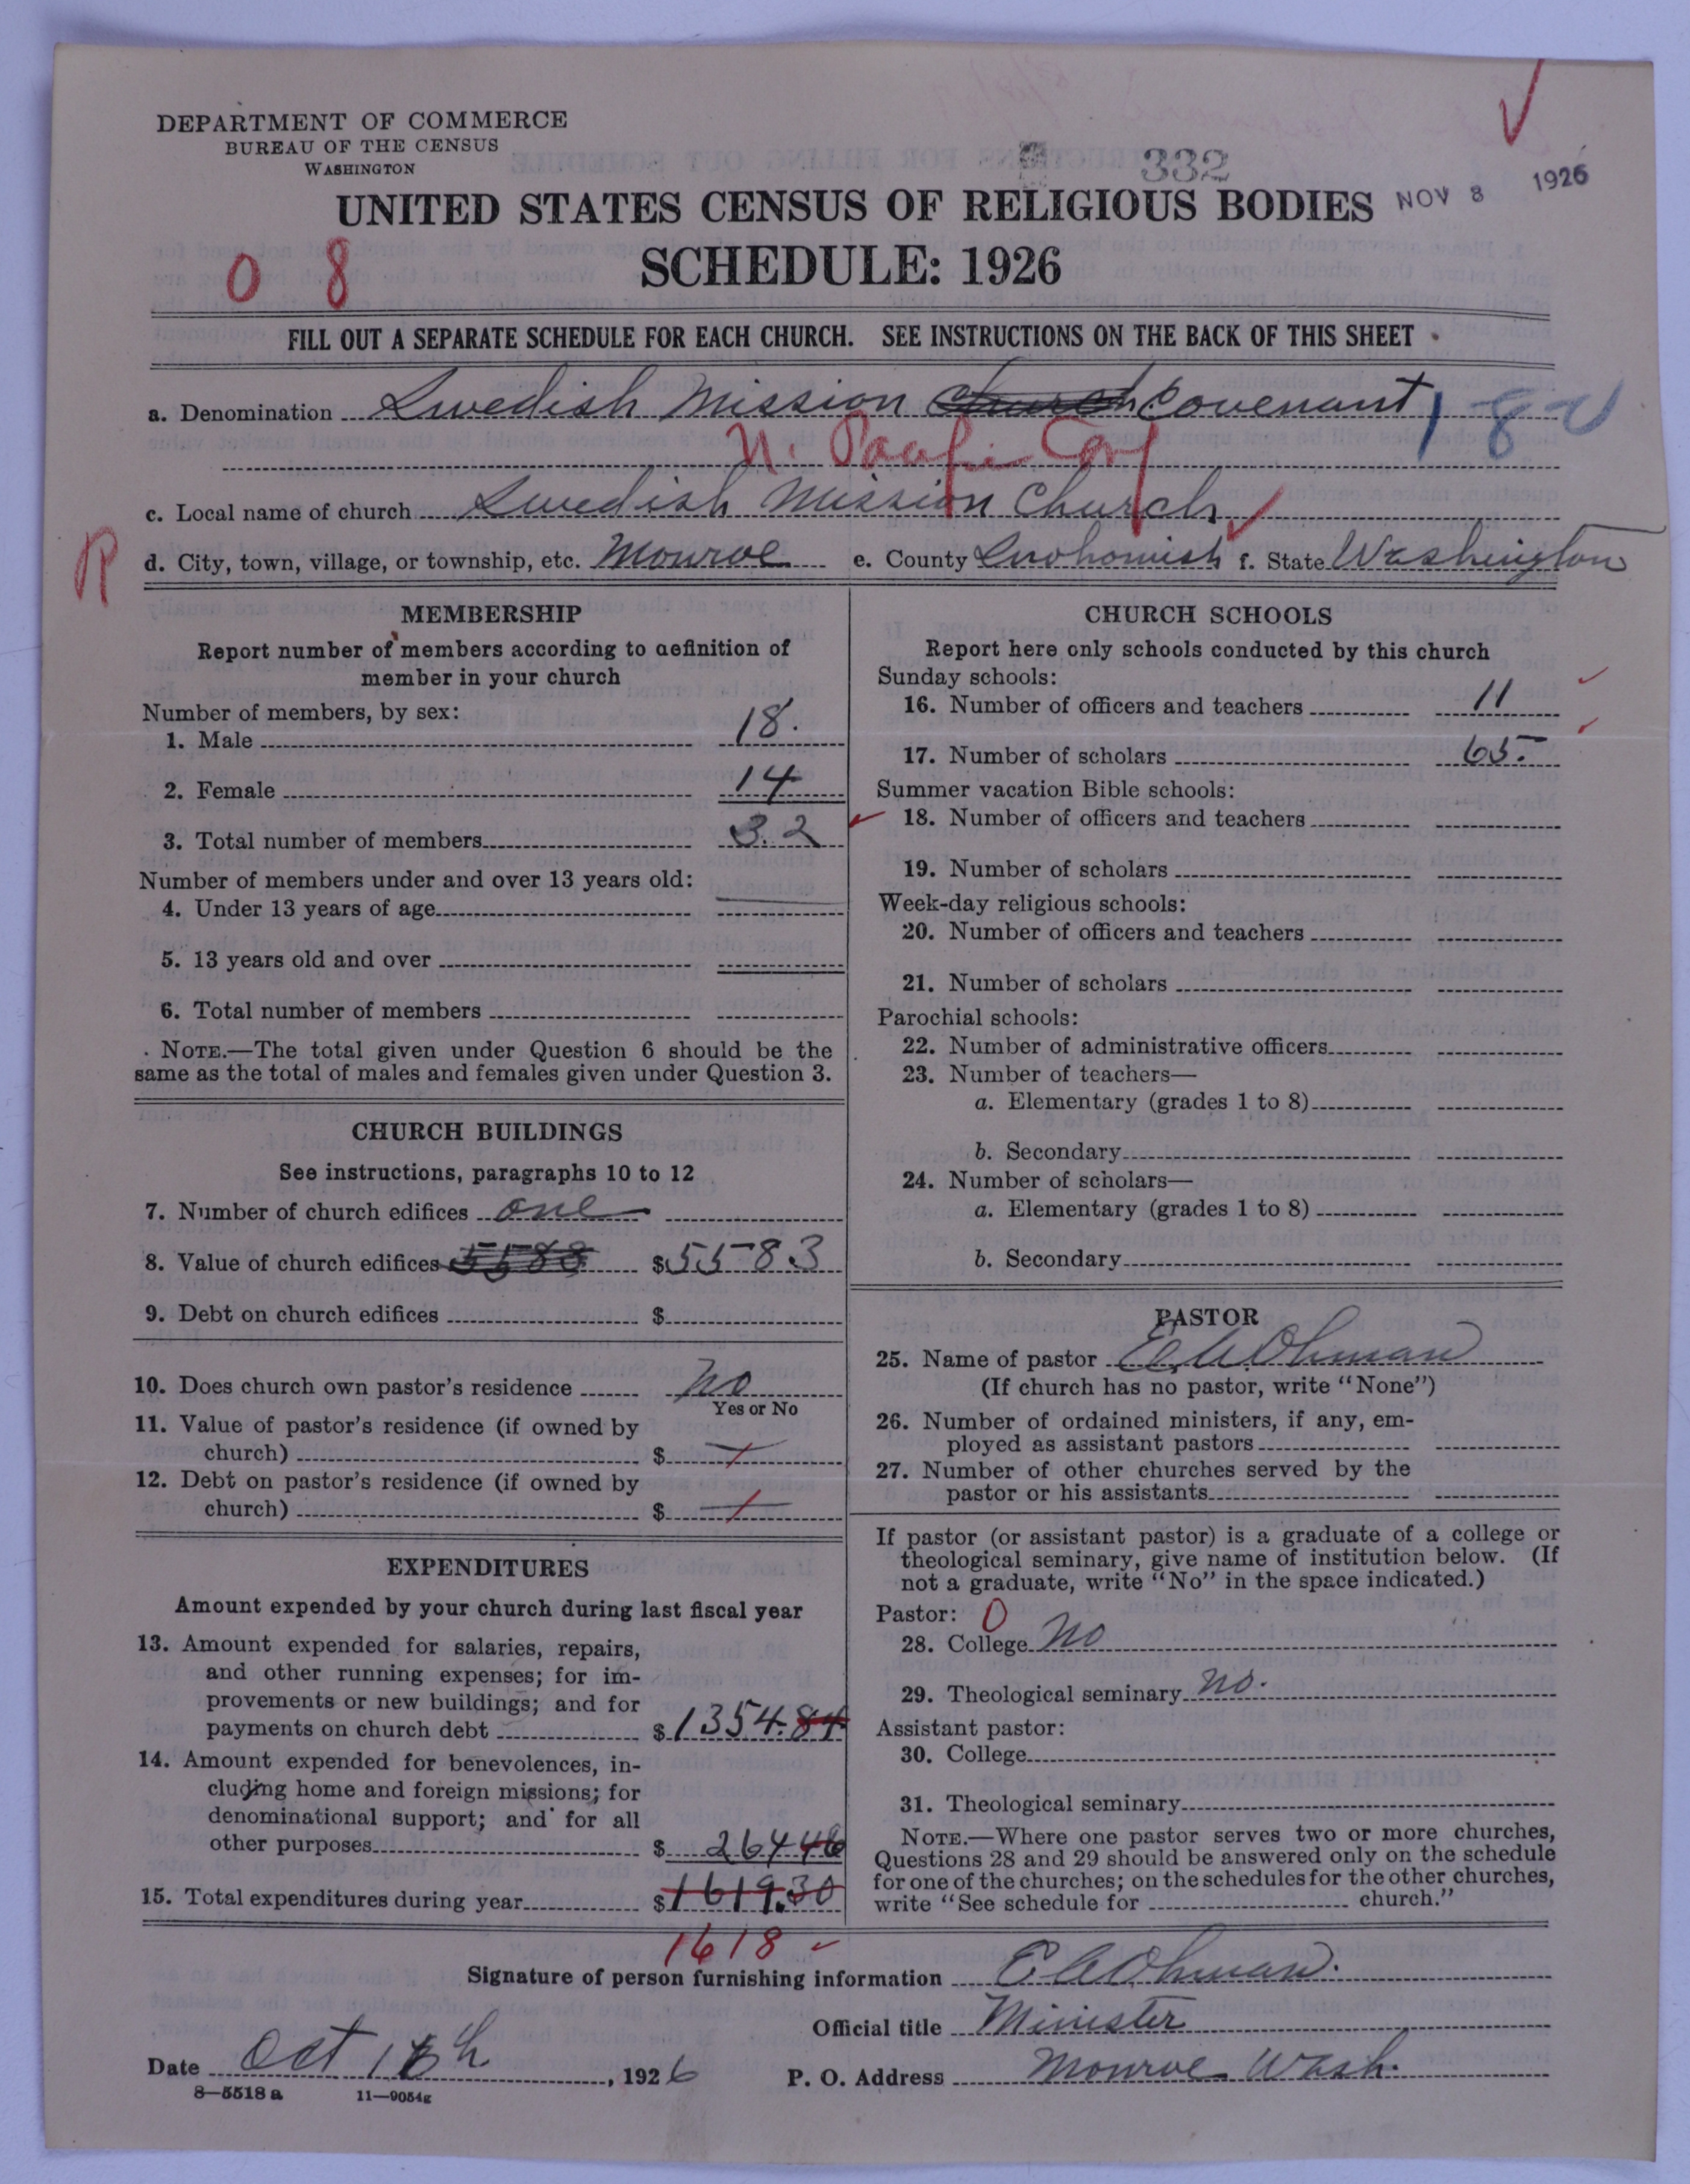 DEPARTMENT OF COMMERCE
BUREAU OF THE CENSUS
WASHINGTON
332
UNITED STATES CENSUS OF RELIGIOUS BODIES NOV 8 1926
SCHEDULE: 1926
0 8
FILL OUT A SEPARATE SCHEDULE FOR EACH CHURCH. SEE INSTRUCTIONS ON THE BACK OF THIS SHEET
a. Denomination Swedish Mission Church Covenant
N. Pacific
c. Local name of church Swedish Mission Church
R d. City, town, village, or township, etc. Monroe e. County Snohomish f. State Washington
MEMBERSHIP
Report number of members according to definition of
member in your church
Number of members, by sex:
1. Male 18.
2. Female 14
3. Total number of members 32
Number of members under and over 13 years old:
4. Under 13 years of age
5. 13 years old and over
6. Total number of members
NOTE.—The total given under Question 6 should be the
same as the total of males and females given under Question 3.
CHURCH BUILDINGS
See instructions, paragraphs 10 to 12
7. Number of church edifices one
8. Value of church edifices $5583
9. Debt on church edifices $
10. Does church own pastor's residence No
Yes or No
11. Value of pastor's residence (if owned by
church) $
12. Debt on pastor's residence (if owned by
church) $
EXPENDITURES
Amount expended by your church during last fiscal year
13. Amount expended for salaries, repairs,
and other running expenses; for im-
provements or new buildings; and for
payments on church debt $1354.84
14. Amount expended for benevolences, in-
cluding home and foreign missions; for
denominational support; and for all
other purposes $ 264 46
15. Total expenditures during year $1619.30
1618
CHURCH SCHOOLS
Report here only schools conducted by this church
Sunday schools:
16. Number of officers and teachers 11
17. Number of scholars 65.
Summer vacation Bible schools:
18. Number of officers and teachers
19. Number of scholars
Week-day religious schools:
20. Number of officers and teachers
21. Number of scholars
Parochial schools:
22. Number of administrative officers
23. Number of teachers—
a. Elementary (grades 1 to 8)
b. Secondary
24. Number of scholars—
a. Elementary (grades 1 to 8)
b. Secondary
PASTOR
25. Name of pastor E. A. Ohman
(If church has no pastor, write "None")
26. Number of ordained ministers, if any, em-
ployed as assistant pastors
27. Number of other churches served by the
pastor or his assistants
If pastor (or assistant pastor) is a graduate of a college or
theological seminary, give name of institution below. (If
not a graduate, write "No" in the space indicated.)
Pastor: 0
28. College No
29. Theological seminary No.
Assistant pastor:
30. College
31. Theological seminary
NOTE.—Where one pastor serves two or more churches,
Questions 28 and 29 should be answered only on the schedule
for one of the churches; on the schedules for the other churches,
write "See schedule for church."
Signature of person furnishing information E A Ohman.
Official title Minister
Date Oct , 1926 P. O. Address Monroe Wash.
8—5518 a 11—9054g